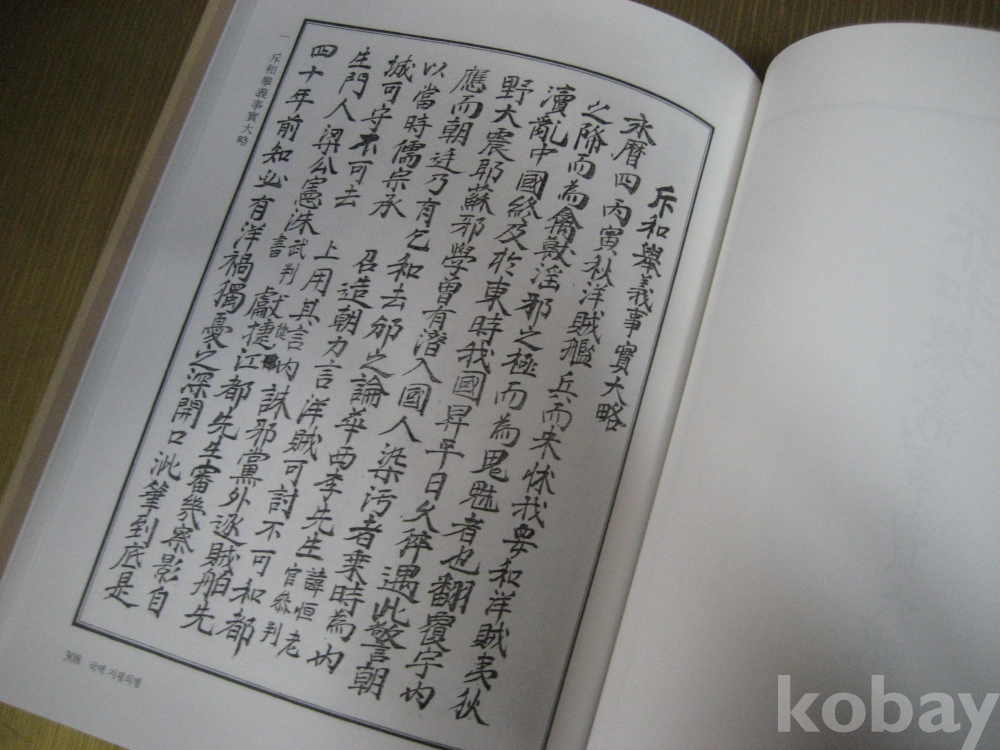 斥和擧義事實大略
永曆四丙寅秋洋賊艦兵而来怵我要和洋賊夷狄
之降而為禽獸淫邪之極而為鬼魅者也翻覆宇內
瀆亂中國終及於東時我國昇平日久猝遇此警朝
野大震耶蘇邪學曾有潛入國人染污者乘時為內
應而朝廷乃有乞和去邠之論華西李先生諱恒老官叅判
以當時儒宗承 召造朝力言洋賊可討不可和都
城可守不可去 上用其言使內誅邪黨外逐賊舶先
生門人梁公憲洙武判書獻捷江都先生審幾察影自
四十年前知必有洋禍獨憂之深開口泚筆到底是
一 斥和擧義事實大略
308 국역 지평의병
kobay